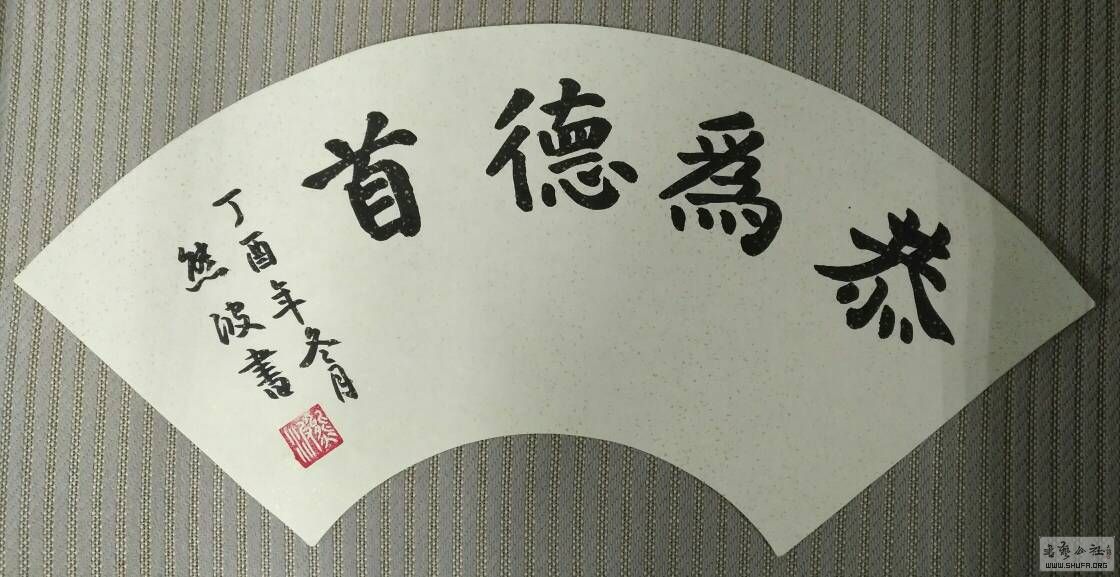 恭為德首
丁酉年冬月
熊波書
書藝公社
WWW.SHUFA.ORG